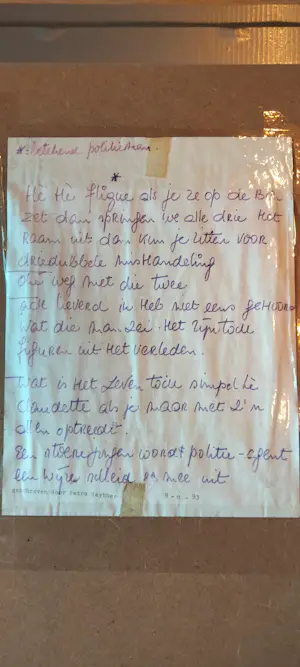 * : politieman.
*
Hé Hé flique als je ze op de B
zet dan springen we alle drie Het
Raam uit dan kun je zitten VOOR
driedubbele mishandeling
weg met die twee
ik Heb niet eens geHoord
wat die man zei. Het zijn
figuren uit Het verleden.
Wat is Het Leven toch simpel hè
Claudette als je maar met z'n
allen optreedt.
Een wordt politie-agent
een wijs mee uit
geschreven door Petra 9-4-93